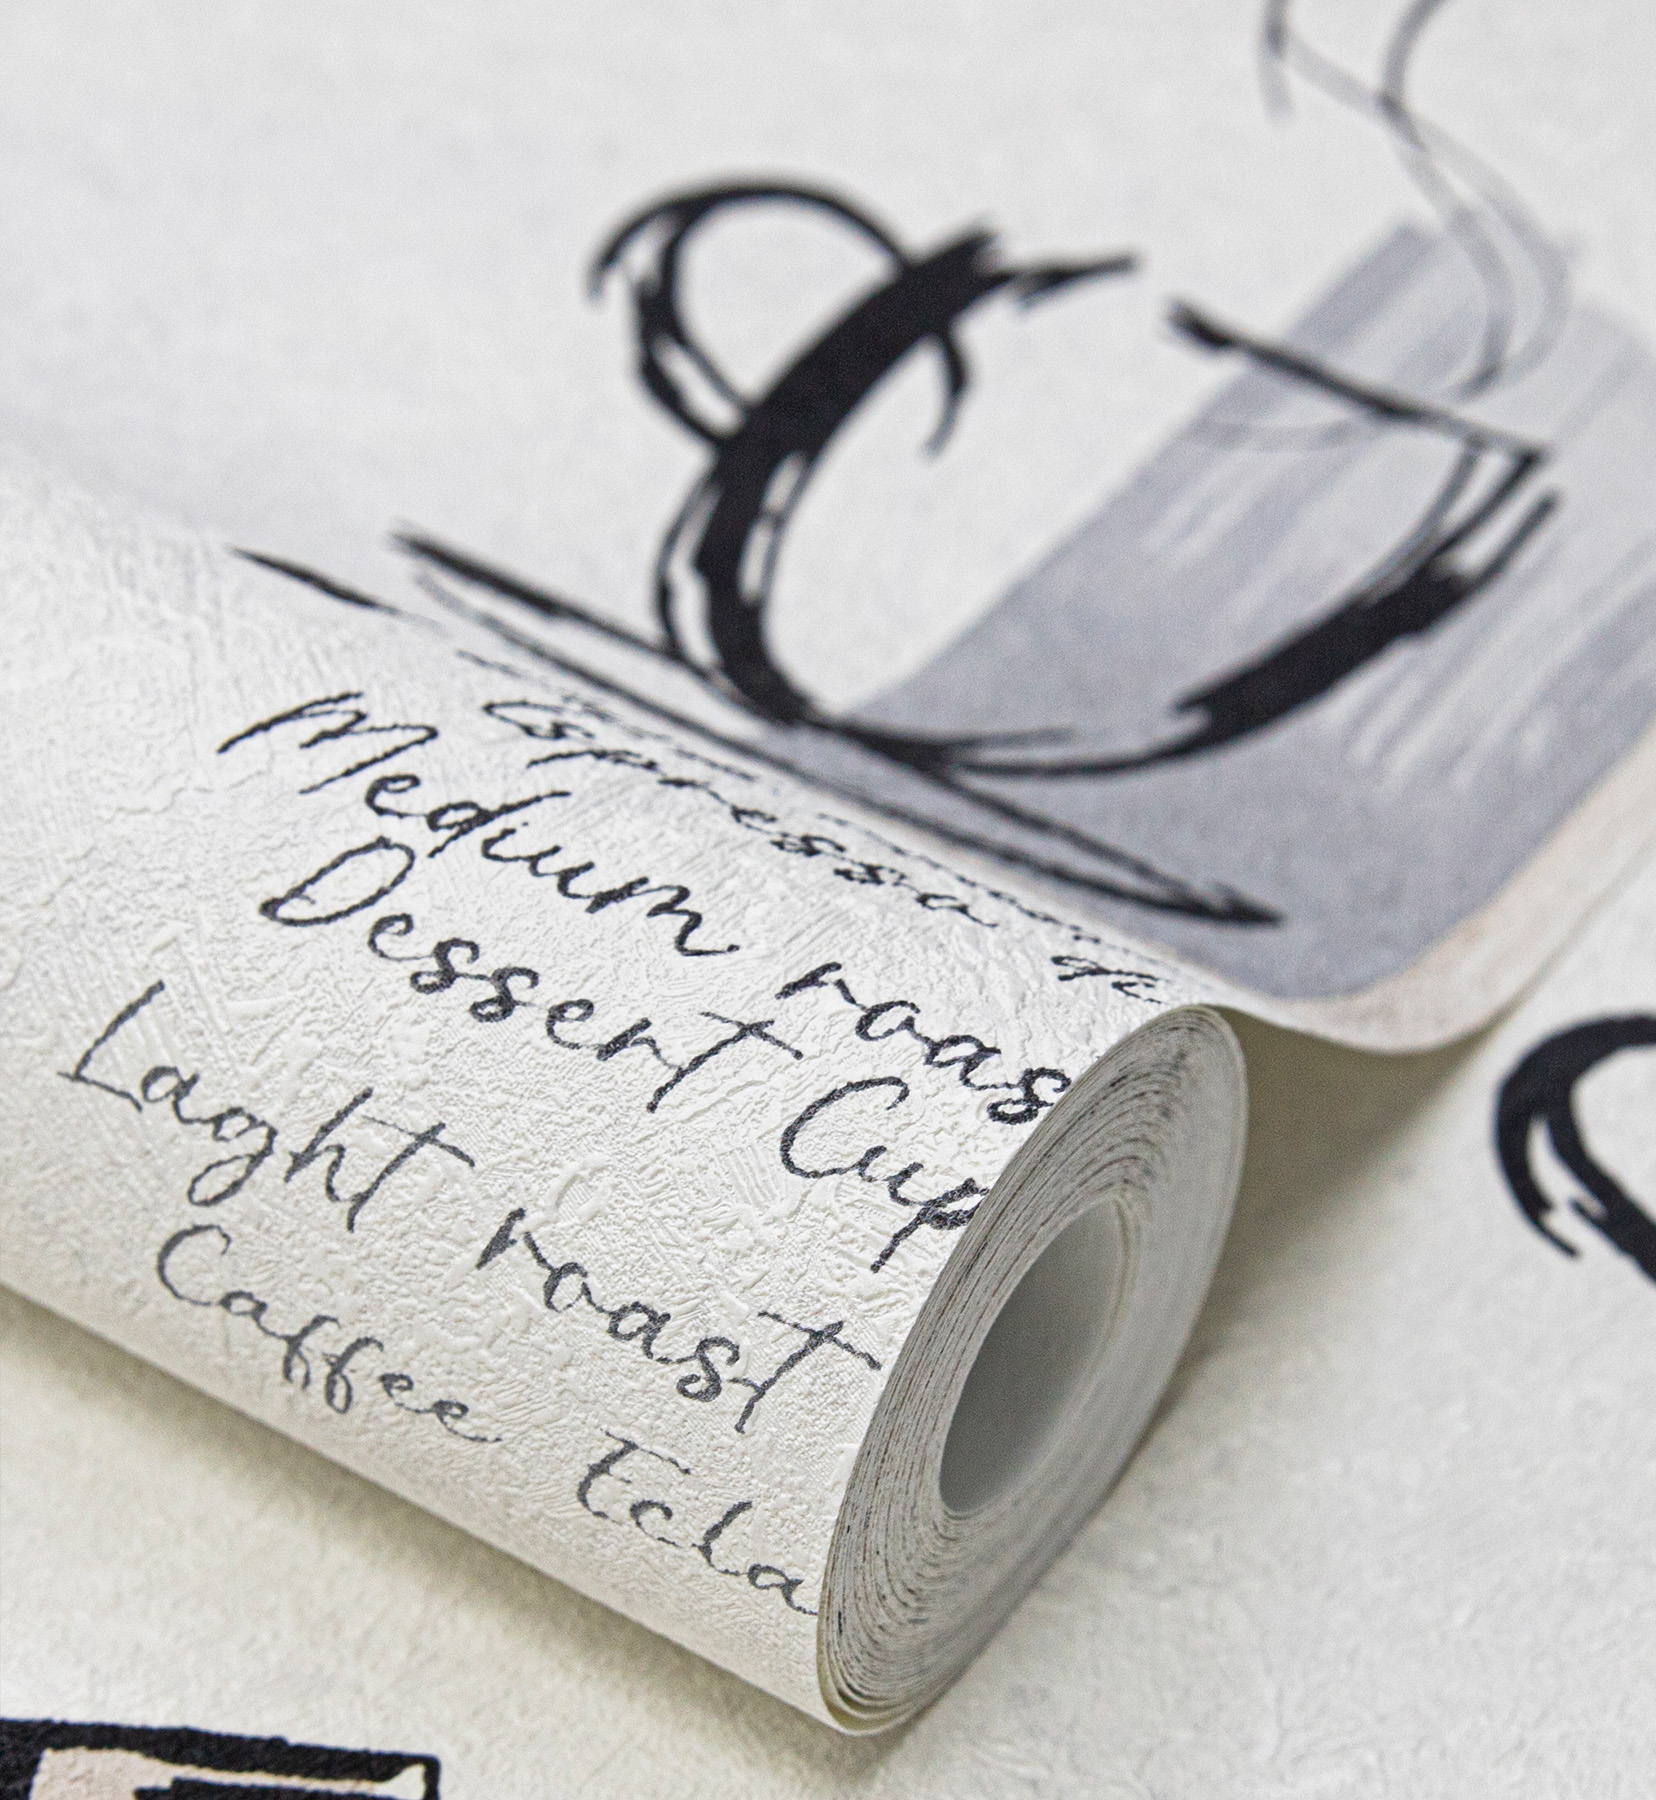 Espressa
Medium roas
Dessert Cup
Laght roast
Caffee Ecla